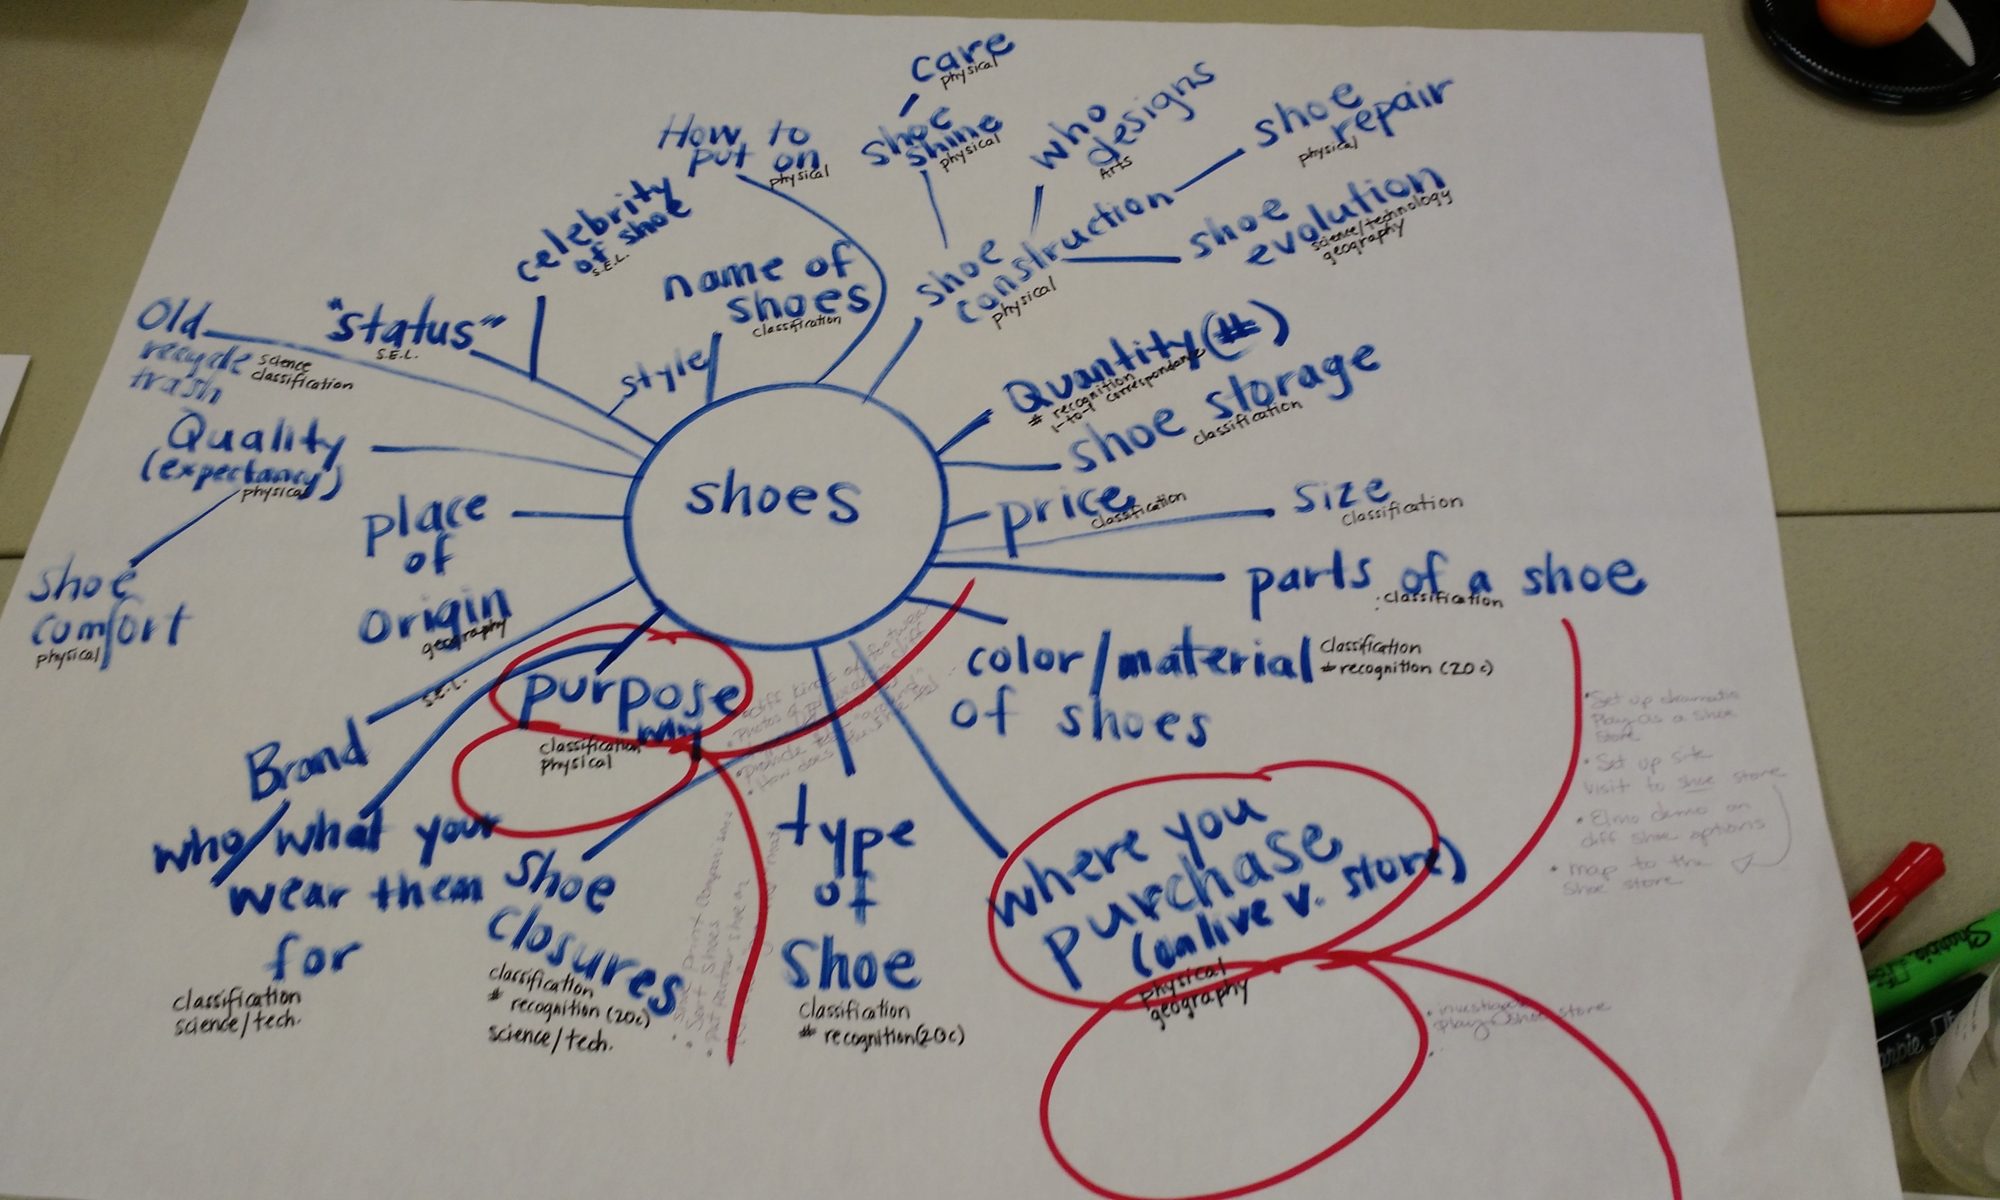 shoes
care
physical
shoe
shine
physical
who
designs
Arts
shoe
repair
physical
shoe
construction
physical
shoe
evolution
science/technology
geography
How to
put on
physical
celebrity
of shoe
S.E.L.
name of
shoes
classification
style
"status"
S.E.L.
Old
recycle
trash
science
classification
Quality
(expectancy)
physical
shoe
comfort
physical
place
of
origin
geography
Quantity (#)
# recognition
1-to-1 correspondance
shoe storage
classification
price
classification
size
classification
parts of a shoe
classification
color/material
of shoes
classification
# recognition (20c)
purpose
why
classification
physical
S.E.L.
Brand
who/what your
wear them
for
classification
science/tech.
shoe
closures
classification
# recognition (20c)
science/tech.
type
of
shoe
classification
# recognition (20c)
where you
purchase
(online v. store)
physical
geography
• Set up dramatic
Play as a shoe
store
• Set up site
visit to shoe store
• Elmo demo on
diff shoe options
• map to the
shoe store
play shoe store
Sharpie